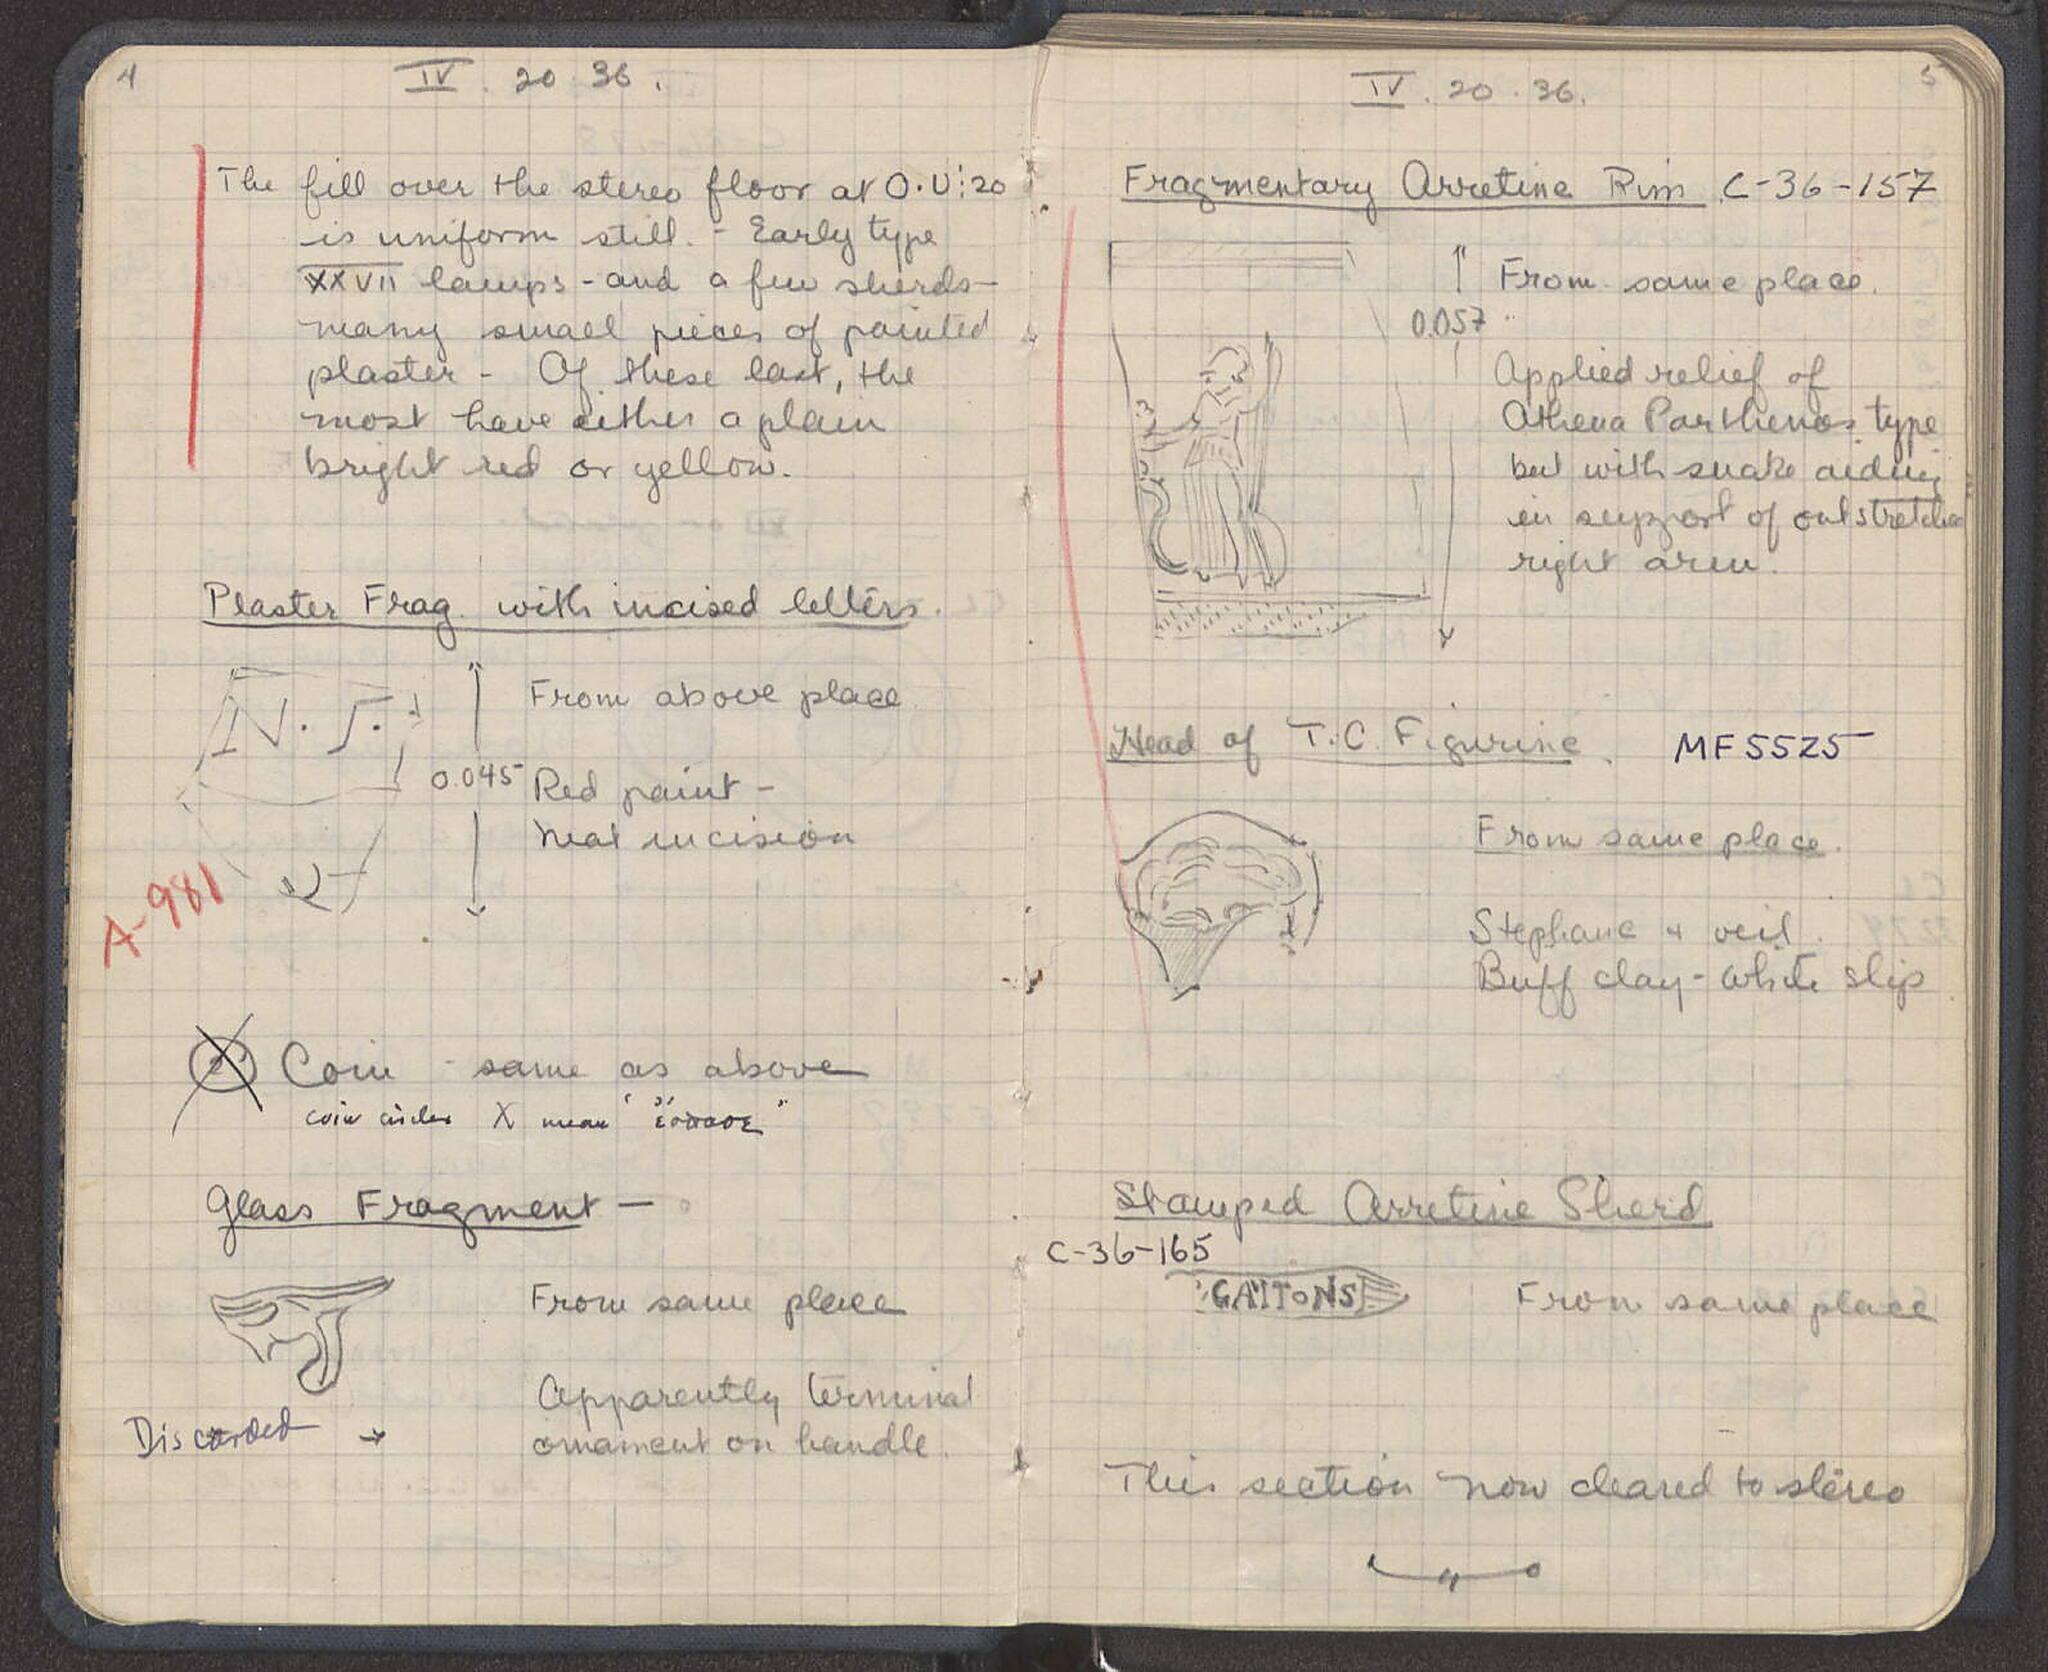 4
IV. 20 36.
The fill over the stereo floor at O.U:20
is uniform still. - Early type
XXVII lamps - and a few sherds -
many small pieces of painted
plaster - Of these last, the
most have either a plain
bright red or yellow.
Plaster Frag. with incised letters.
From above place
0.045
Red paint -
Neat incision
A-981
Coin - same as above
coin circles X mean
Glass Fragment -
From same place
Apparently terminal
ornament on handle.
Discarded →
5
IV. 20. 36.
Fragmentary Arretine Rim C-36-157
From same place.
0.057
Applied relief of
Athena Parthenos type
but with snake aiding
in support of outstretched
right arm.
Head of T.C. Figurine. MF5525
From same place.
Stephane + veil.
Buff clay - White slip
Stamped Arretine Sherd
C-36-165
From same place
This section now cleared to stereo